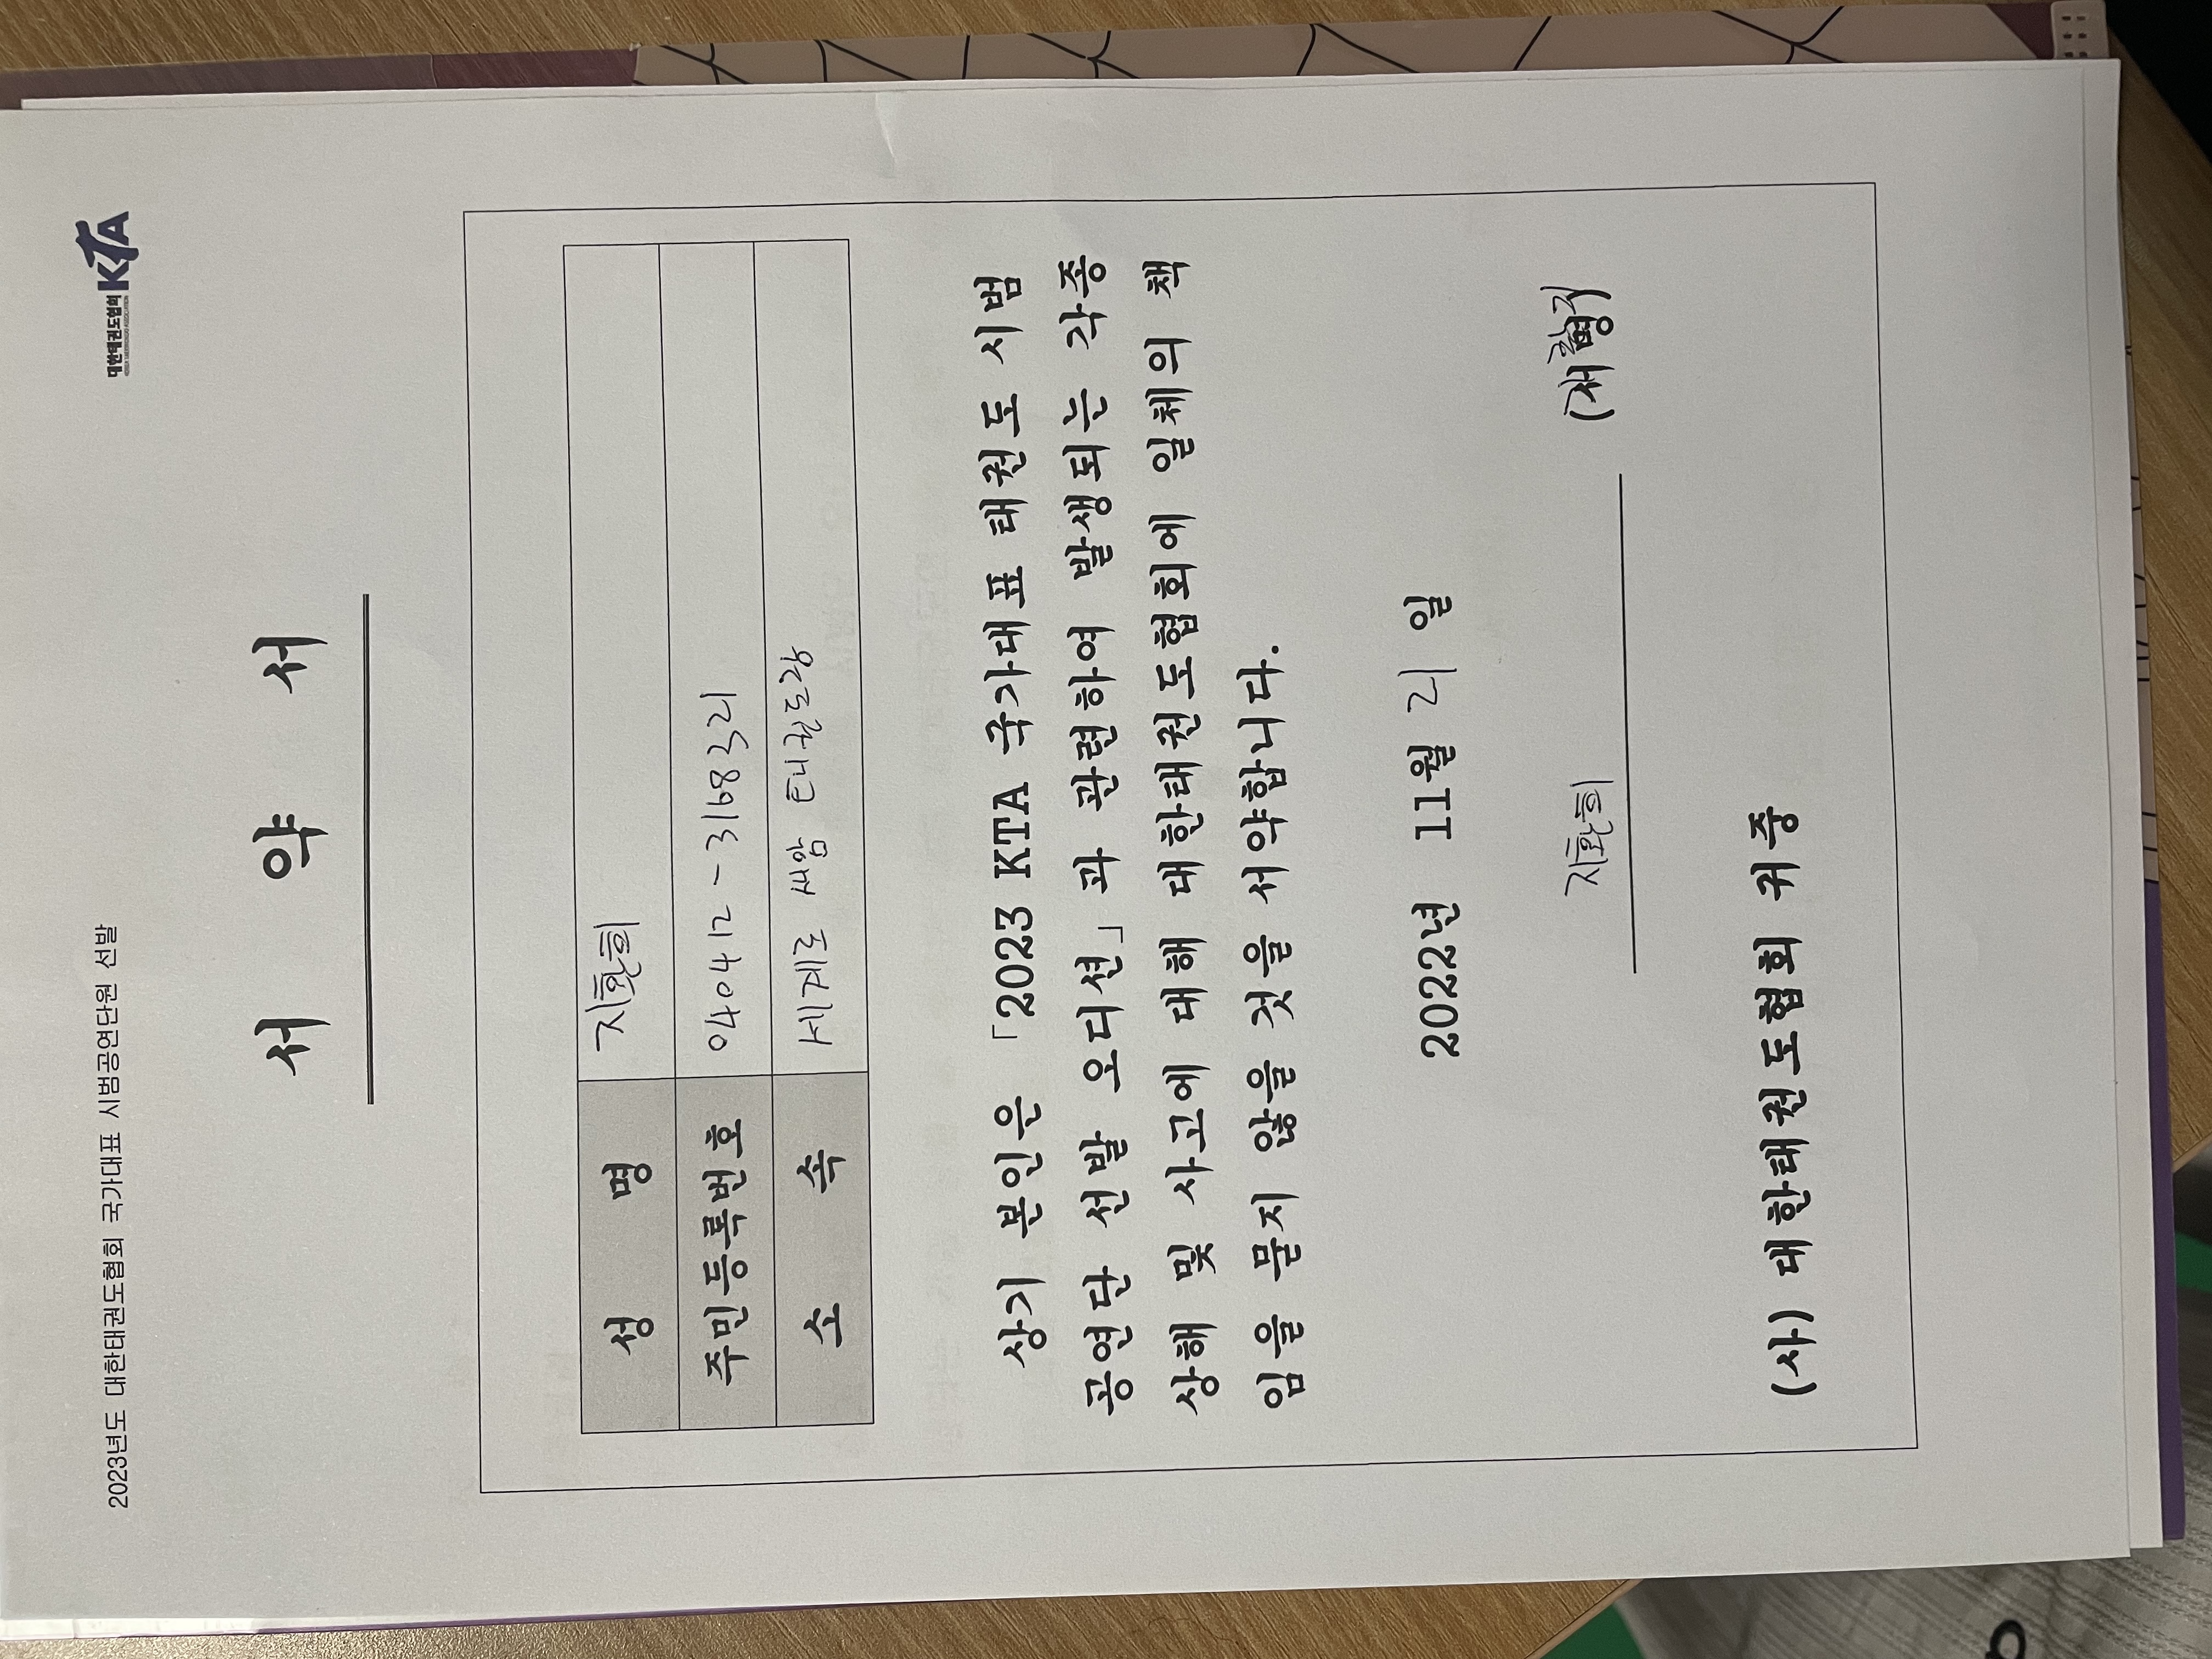 2023년도 대한태권도협회 국가대표 시범공연단원 선발
대한태권도협회 KTA
KOREA TAEKWONDO ASSOCIATION
서 약 서
성 명 지환희
주민등록번호 040412-3168321
소 속 세계로 쎄암 태권도장
상기 본인은 「2023 KTA 국가대표 태권도 시범
공연단 선발 오디션」과 관련하여 발생되는 각종
상해 및 사고에 대해 대한태권도협회에 일체의 책
임을 물지 않을 것을 서약합니다.
2022년 11월 21일
지환희 (서명)
(사) 대한태권도협회 귀중